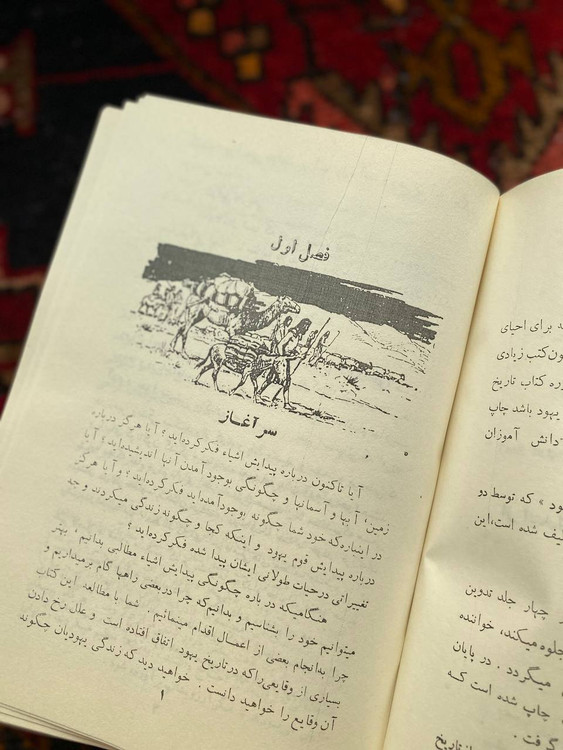 برای احیای
کتب زیادی
کتاب تاریخ
یهود باشد چاپ
دانش آموزان
» که توسط دو
شده است، این
چهار جلد تدوین
جلوه میکند، خواننده
میگردد . در پایان
چاپ شده است که
گرفت .
تاریخ
فصل اول
سر آغاز
آیا تاکنون درباره پیدایش اشیاء فکر کرده‌اید ؟ آیا هرگز درباره
زمین، آبها و آسمانها و چگونگی بوجود آمدن آنها اندیشیده‌اید ؟ آیا
در اینباره که خود شما چگونه بوجود آمده‌اید فکر کرده‌اید ؟ و آیا هرگز
درباره پیدایش قوم یهود و اینکه کجا و چگونه زندگی میکردند و چه
تغییراتی در حیات طولانی ایشان پیدا شده فکر کرده‌اید ؟
هنگامیکه درباره چگونگی پیدایش اشیاء مطالبی بدانیم ، بهتر
میتوانیم خود را بشناسیم و بدانیم که چرا در بعضی راهها گام برمیداریم و
چرا بدانجام بعضی از اعمال اقدام مینمائیم . شما با مطالعه این کتاب
بسیاری از وقایعی را که در تاریخ یهود اتفاق افتاده است و علل رخ دادن
آن وقایع را خواهید دانست . خواهید دید که زندگی یهودیان چگونه
۱